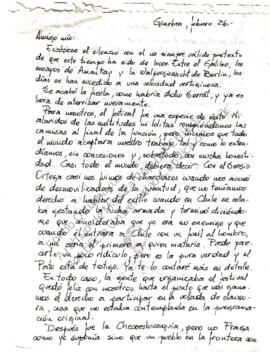 Ginebra, febrero 26.-
Amigo mío:
Excúsese el silencio con el un siempre válido pretexto
de que este tiempo ha sido de locos. Entre el Galileo, los
ensayos de Amnistay y la Walpurgisnacht de Berlín, los
días se han sucedido a una velocidad vertiginosa.
Se acabó la fiesta, como habría dicho Serrat, y ya es
hora de aterrizar nuevamente.
Para nosotros, el festival fue una especie de éxito. Ni
alaridos de las multitudes ni lolitas
camisas al final de la función, pero sí que
el mundo aceptara nuestro trabajo tal y como lo enten-
díamos, sin concesiones y, sobretodo, con mucha honesti-
dad. Casi todo el mundo, debería decir. Con el Sergio
Ortega casi nos fuimos de charchazos cuando nos acusó
de desmovilizadores de la juventud, que no teníamos
derecho a hablar del exilio cuando en Chile se estaba
gestando la lucha armada y terminó diciéndo-
me que consideraba que yo era su enemigo y que
cuando él entrara a Chile con un fusil al hombro,
a mí sería al primero a quien mataría. Puede pare-
certe un poco ridículo, pero es la pura verdad y el
Pato está de testigo. Ya te lo contaré más en detalle.
En todo caso, la gente que organizaba el festival
quedó feliz con nosotros, hasta el punto que nos gana-
mos el derecho a participar en la velada de clausu-
ra, cosa que no estaba contemplada en la programa-
ción original.
Después fue la Checoeslovaquia, pero no Praga
como yo suponía sino que un pueblo en la frontera con